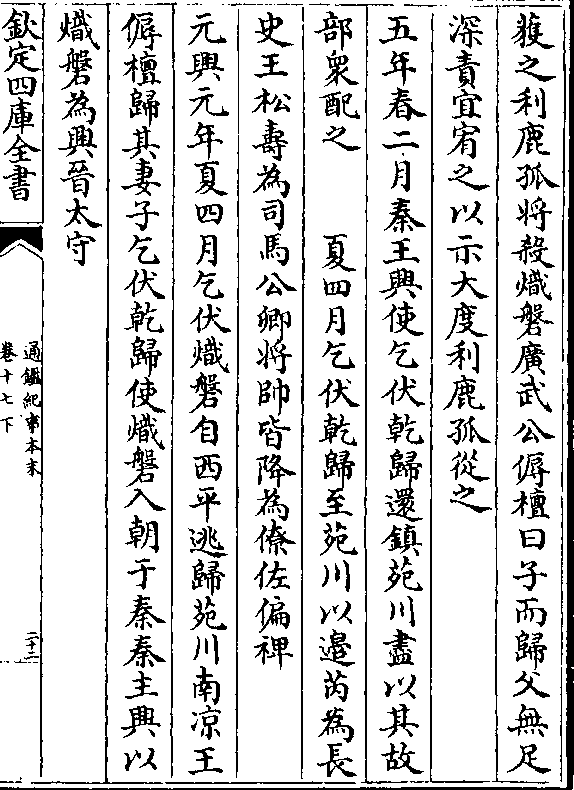 獲之利鹿孤将殺熾磐廣武公傉檀曰子而歸父無足
深責宜宥之以示大度利鹿孤從之
五年春二月秦王興使乞伏乾歸還鎮苑川盡以其故
部衆配之　　夏四月乞伏乾歸至苑川以邉芮為長
史王松壽為司馬公卿将帥皆降為僚佐偏裨
元興元年夏四月乞伏熾磐自西平逃歸苑川南凉王
傉檀歸其妻子乞伏乾歸使熾磐入朝于秦秦主興以
熾磐為興晉太守
欽定四庫全書
通鑑紀事本末
卷十七下
二十二